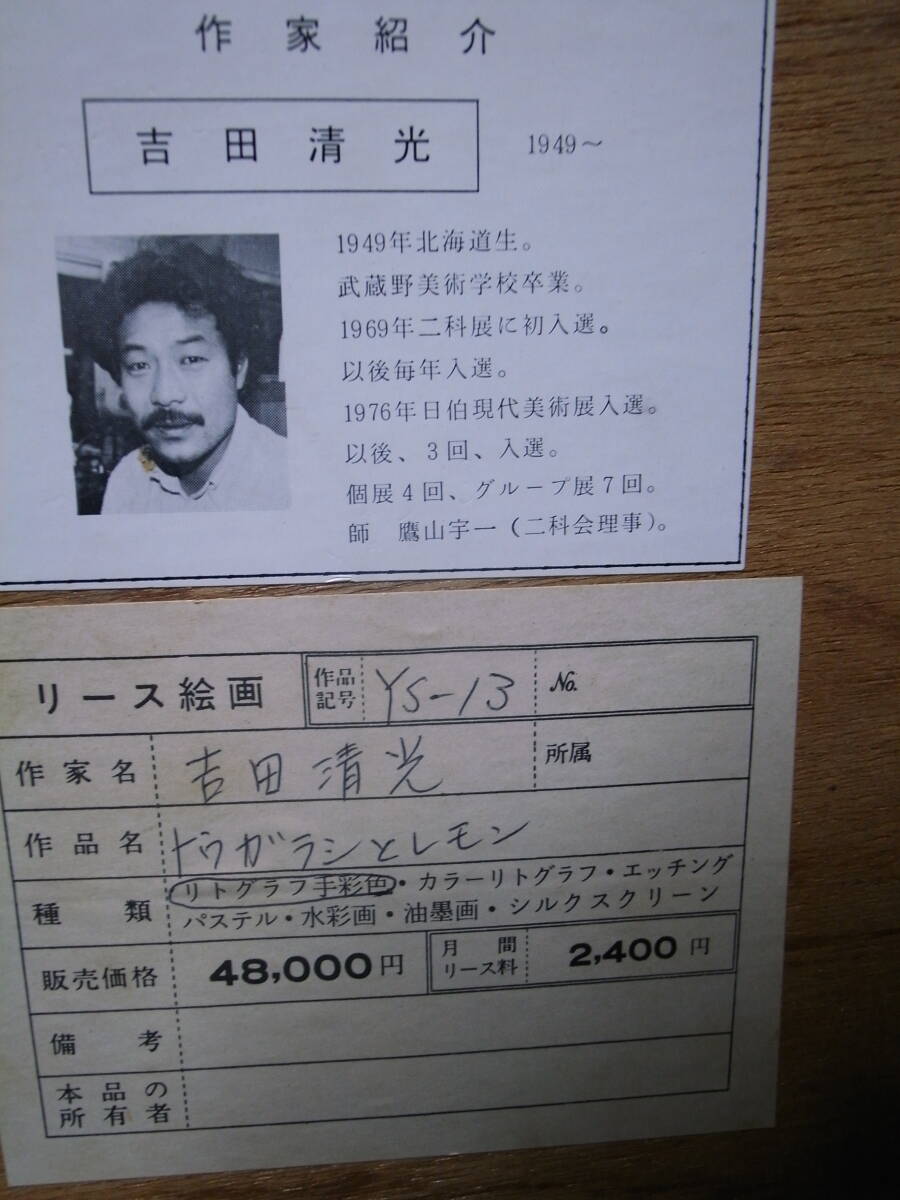 作家紹介
吉田清光 1949～
1949年北海道生。
武蔵野美術学校卒業。
1969年二科展に初入選。
以後毎年入選。
1976年日伯現代美術展入選。
以後、3回、入選。
個展4回、グループ展7回。
師 鷹山宇一（二科会理事）。
リース絵画 作品記号 YS-13 No.
作家名 吉田清光 所属
作品名 トウガラシとレモン
種類 リトグラフ手彩色・カラーリトグラフ・エッチング
パステル・水彩画・油墨画・シルクスクリーン
販売価格 48,000円 月間リース料 2,400円
備考
本品の
所有者